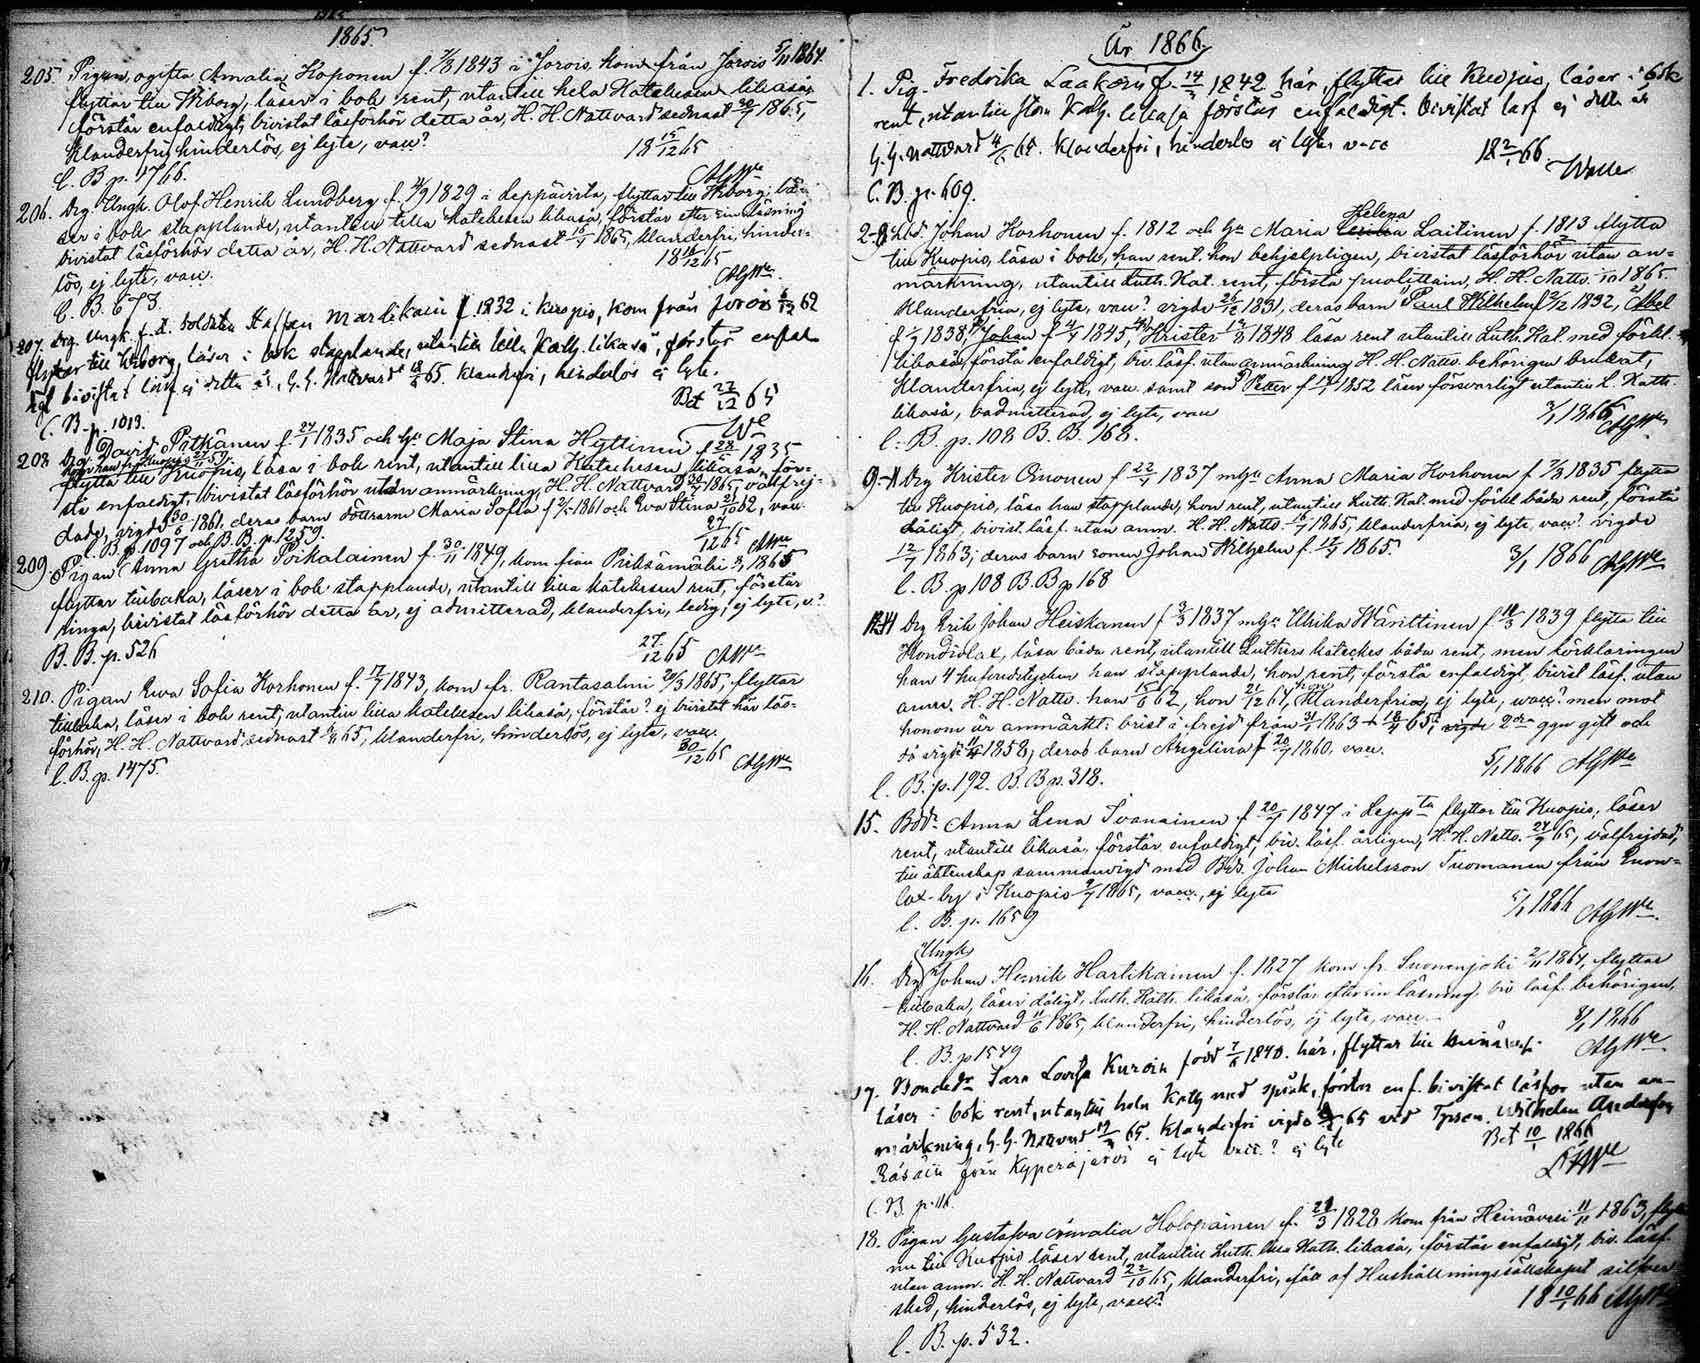 1865.
205. Pigan, ogifta Amalia Koponen f. 7/8 1843 i Jorois, kom från Jorois 5/11 1864.
flyttar till Wiborg, läser i bok rent, utantill hela Katekesen likaså,
förstår enfaldigt, bivistat läsförhör detta år, H. H. Nattvard sednast 30/7 1865,
klanderfri, hinderlös, ej lyte, vacc?
18 15/12 65
C. B. p. 1766. AGWe
206. Drg. Ungk. Olof Henrik Lundberg f. 4/9 1829 i Leppävirta, flyttar till Wiborg, lä-
ser i bok stapplande, utantill lilla katekesen likaså, förstår efter sin läsning
bivistat läsförhör detta år, H. H. Nattvard sednast 16/4 1865, klanderfri, hinder-
lös, ej lyte, vacc.
18 16/12 65
AGWe.
C. B. 673.
207. Drg. Ungk. f. d. Soldaten Staffan Martikain f. 1832 i Kuopio, kom från Jorois 6/12 62
flyttar till Wiborg, läser i bok stapplande, utantill lilla Kath. likaså, förstår enfal-
digt bivistat läsf ej detta år, H. H. Nattvard 18/6 65. Klanderfri, hinderlös ej lyte.
Bet 27/12 65
C. B. p. 1013. We
208 Drg. David Pitkänen f. 27/1 1835 och h:u Maja Stina Hyttinen f 28/5 1835
flytta till Kuopio, läsa i bok rent, utantill lilla Katechesen likaså, för-
stå enfaldigt, bivistat läsförhör utan anmärkning, H. H. Nattvard 1865, välfrej-
dade, vigde 30/6 1861. deras barn döttrarne Maria Sofia f 1861 och Eva Stina 62, vacc.
C. B. p. 1097 och B. B. p. 1259.
27/12 65 AGWe
209. Pigan Anna Gretha Poikalainen f. 30/11 1849, kom från Pieksämäki 1865
flyttar tillbaka, läser i bok stapplande, utantill lilla katekesen rent, förstår
ringa, bivistat läsförhör detta år, ej admitterad, klanderfri, ledig, ej lyte, v.?
27/12 65 AGWe
B. B. p. 526
210. Pigan Ewa Sofia Korhonen f. 17/7 1843, kom fr. Rantasalmi 20/3 1865, flyttar
tillbaka, läser i bok rent, utantill lilla katekesen likaså, förstår? ej bivistat här läs-
förhör, H. H. Nattvard sednast 65, klanderfri, hinderlös, ej lyte, vacc.
30/12 65 AGWe
C. B. p. 1475.
År 1866.
1. Pig. Fredrika Laakoin f. 14/3 1842 här, flyttar till Kuopio, läser i bok
rent, utantill stora Kath. likaså förstår enfaldigt. bivistat läsf ej detta år
H. H. Nattvard 4/6 65. Klanderfri, hinderlös ej lyte vacc
18 2/1 66
C. B. p. 609.
Helena
2-8. Johan Korhonen f. 1812 och h:u Maria Laitinen f. 1813 flytta
till Kuopio, läsa i bok, han rent, hon behjelpligen, bivistat läsförhör utan an-
märkning, utantill Luth. Kat. rent, förstå, H. H. Nattv. 1865.
klanderfria, ej lyte, vacc? vigde 26/12 1831, deras barn Paul Wilhelm 1832, Abel
f 1/7 1838, Johan f 1845, Krister 1848 läsa rent utantill Luth. Kat. med förkl.
likaså, förstå enfaldigt, biv. läsf. utan anmärkning H. H. Nattv. behörigen brukat,
klanderfria, ej lyte, vacc. samt son Petter f 1852 läser försvarligt utantill L. Kath.
likaså, oadmitterad, ej lyte, vacc
3/1 1866 AGWe
C. B. p. 108 B. B. 168.
9-11 Drg Krister Oinonen f 22/7 1837 m h:u Anna Maria Korhonen f 7/8 1835 flytta
till Kuopio, läsa han stapplande, hon rent, utantill Luth. Kat. med förkl. båda rent, förstå
dåligt, bivist. läsf. utan anm. H. H. Nattv. 1865, klanderfria, ej lyte, vacc? vigde
12/7 1863; deras barn sonen Johan Wilhelm f. 12/7 1865.
3/1 1866 AGWe
C. B. p 108 B. B p 168
12-14 Drg Erik Johan Heiskanen f 3/3 1837 m h:u Ulrika Wänttinen f 11/3 1839 flytta till
Kondiolax, läsa båda rent, utantill Luthers kateches båda rent, men förklaringen
han 4 hufvudstycken han stapplande, hon rent, förstå enfaldigt, bivist läsf. utan
anm. H. H. Nattv. han 15/6 62, hon 21/12 64, hon klanderfria, ej lyte, vacc? men mot
honom är anmärkt: brist i frejd från 1863 65; 2dra ggn gift och
då vigd 1858; deras barn Angelina f 20/7 1860, vacc.
5/1 1866 AGWe
C. B. p. 192. B. B p. 318.
15. Bdr. Anna Lena Ivanainen f 20/7 1847 i Lepp:ta flyttar till Kuopio, läser
rent, utantill likaså, förstår enfaldigt, biv. läsf. årligen, H. H. Nattv. 24/9 65, välfrejdad,
till äktenskap sammanvigd med Bds. Johan Michelsson Tuomanen från Enon-
lax by i Kuopio 9/7 1865, vacc., ej lyte
5/1 1866 AGWe.
C. B. p. 1659
Ungk
16. Drg Johan Henrik Hartikainen f. 1827 kom fr. Suonenjoki 2/11 1864, flyttar
tillbaka, läser dåligt, Luth. Kath. likaså, förstår efter sin läsning, biv läsf. behörigen,
H. H. Nattvard 11/6 1865, klanderfri, hinderlös, ej lyte, vacc.
8/1 1866
C. B. p 1549 AGWe
17. Bondedr Sara Lovisa Kuroin född 7/6 1840. här, flyttar till
läser i bok rent, utantill hela Kath med språk, förstår enf. bivistat läsför utan an-
märkning, H. H. Nattvard 65. Klanderfri vigde 65 vid Wilhelm Andersson
Räsäin från Kyperäjärvi ej lyte vacc? ej lyte
Bet 10/1 1866
C. B. p. 116.
18. Pigan Gustafva Amalia Holopainen f. 27/3 1828 kom från Heinävesi 11/11 1863, flyttar
nu till Kuopio läser rent, utantill Luth. lilla Kath. likaså, förstår enfaldigt, biv. läsf.
utan anm. H. H. Nattvard 22/10 65, klanderfri, af Hushållningssällskapet silfver-
sked, hinderlös, ej lyte, vacc?
18 10/1 66 AGWe
C. B. p. 532.